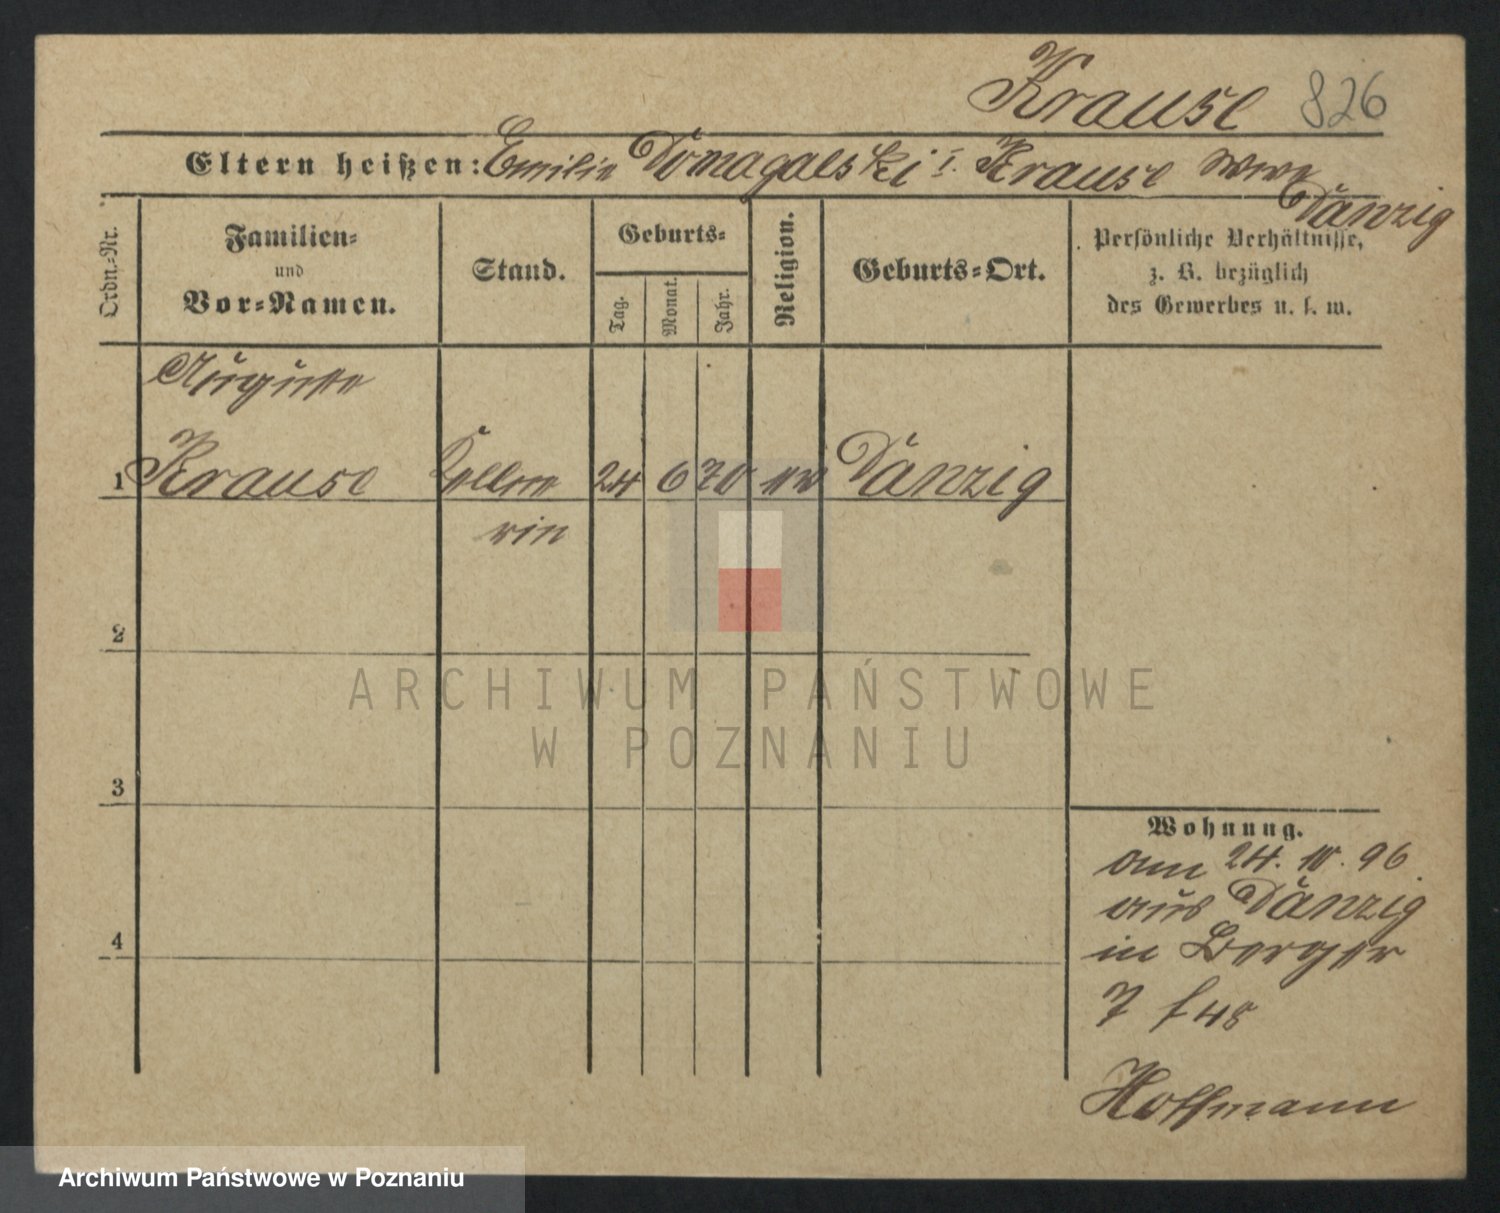 Krause 826
Eltern heißen: Emilie Domagalski I. Krause Wwe
Danzig
Ordn.-Nr.
Familien-
und
Vor-Namen.
Stand.
Geburts-
Tag.
Monat.
Jahr.
Religion.
Geburts-Ort.
Persönliche Verhältnisse,
z. B. bezüglich
des Gewerbes u. s. w.
Auguste
1 Krause Kellne 24 6 70 ev Danzig
rin
2
3
4
Wohnung.
am 24. 10. 96
aus Danzig
in Berger
7 f 48
Hoffmann
ARCHIWUM PAŃSTWOWE
W POZNANIU
Archiwum Państwowe w Poznaniu